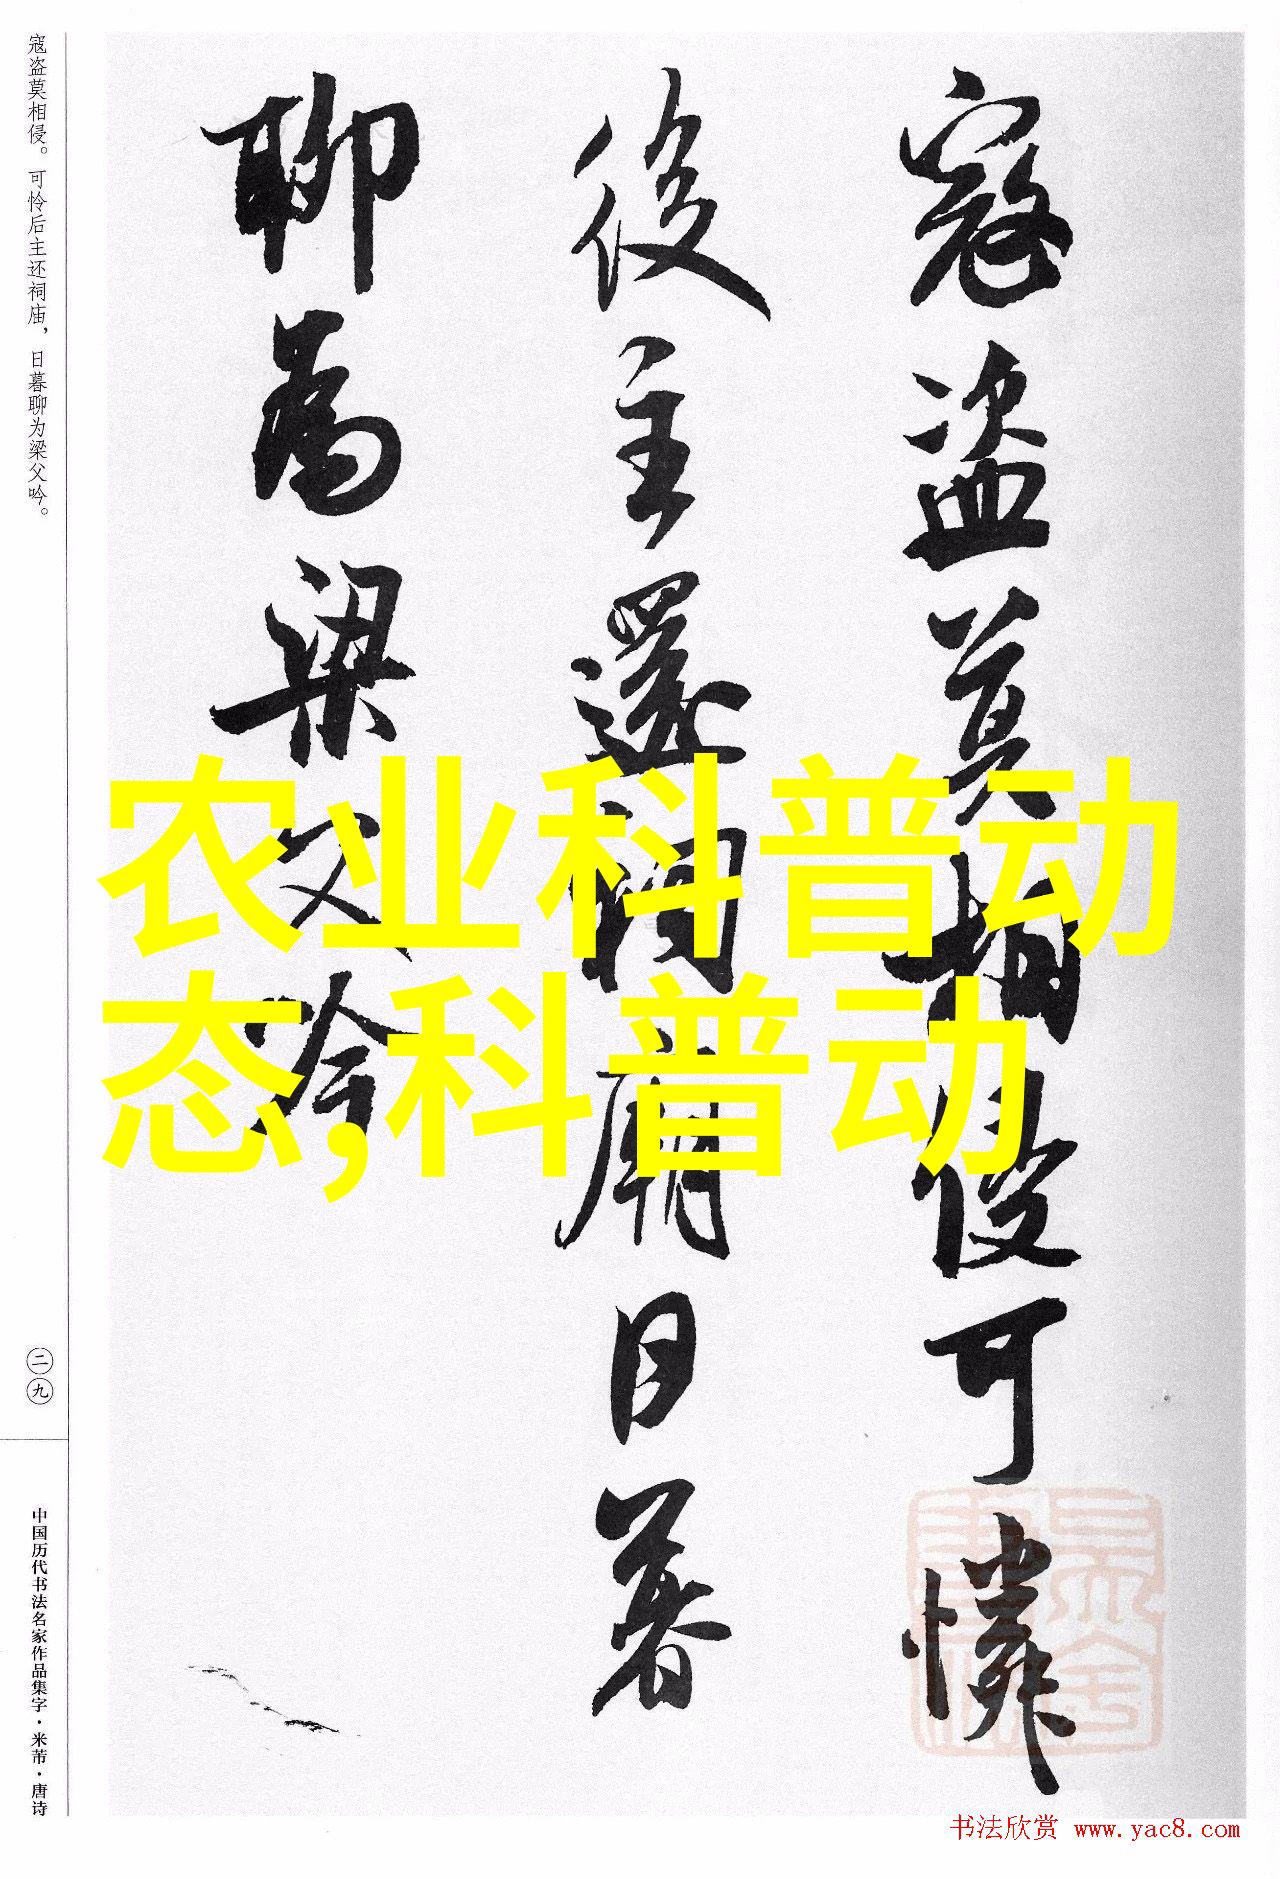 寇盗莫相侵可憐
後主還祠廟日暮
聊為梁父吟
寇盗莫相侵。可怜后主还祠庙，日暮聊为梁父吟。
二九
中国历代书法名家作品集字·米芾·唐诗
农业科普动
态,科普动
书法欣赏 www.yac8.com